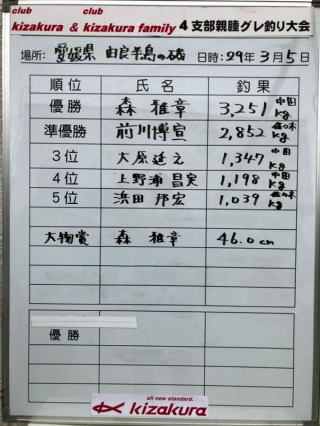 club club
kizakura & kizakura family 4支部親睦グレ釣り大会
場所: 愛媛県 由良半島の磯 日時: 29年3月5日
順位 氏名 釣果
優勝 森 雅章 3,251 kg 中国
準優勝 前川博宣 2,852 kg 佐々木
3位 大原延之 1,347 kg 中国
4位 上野浦昌実 1,198 kg 中国
5位 浜田邦宏 1,039 kg 佐々木
大物賞 森 雅章 46.0cm
優勝
all new standard.
kizakura